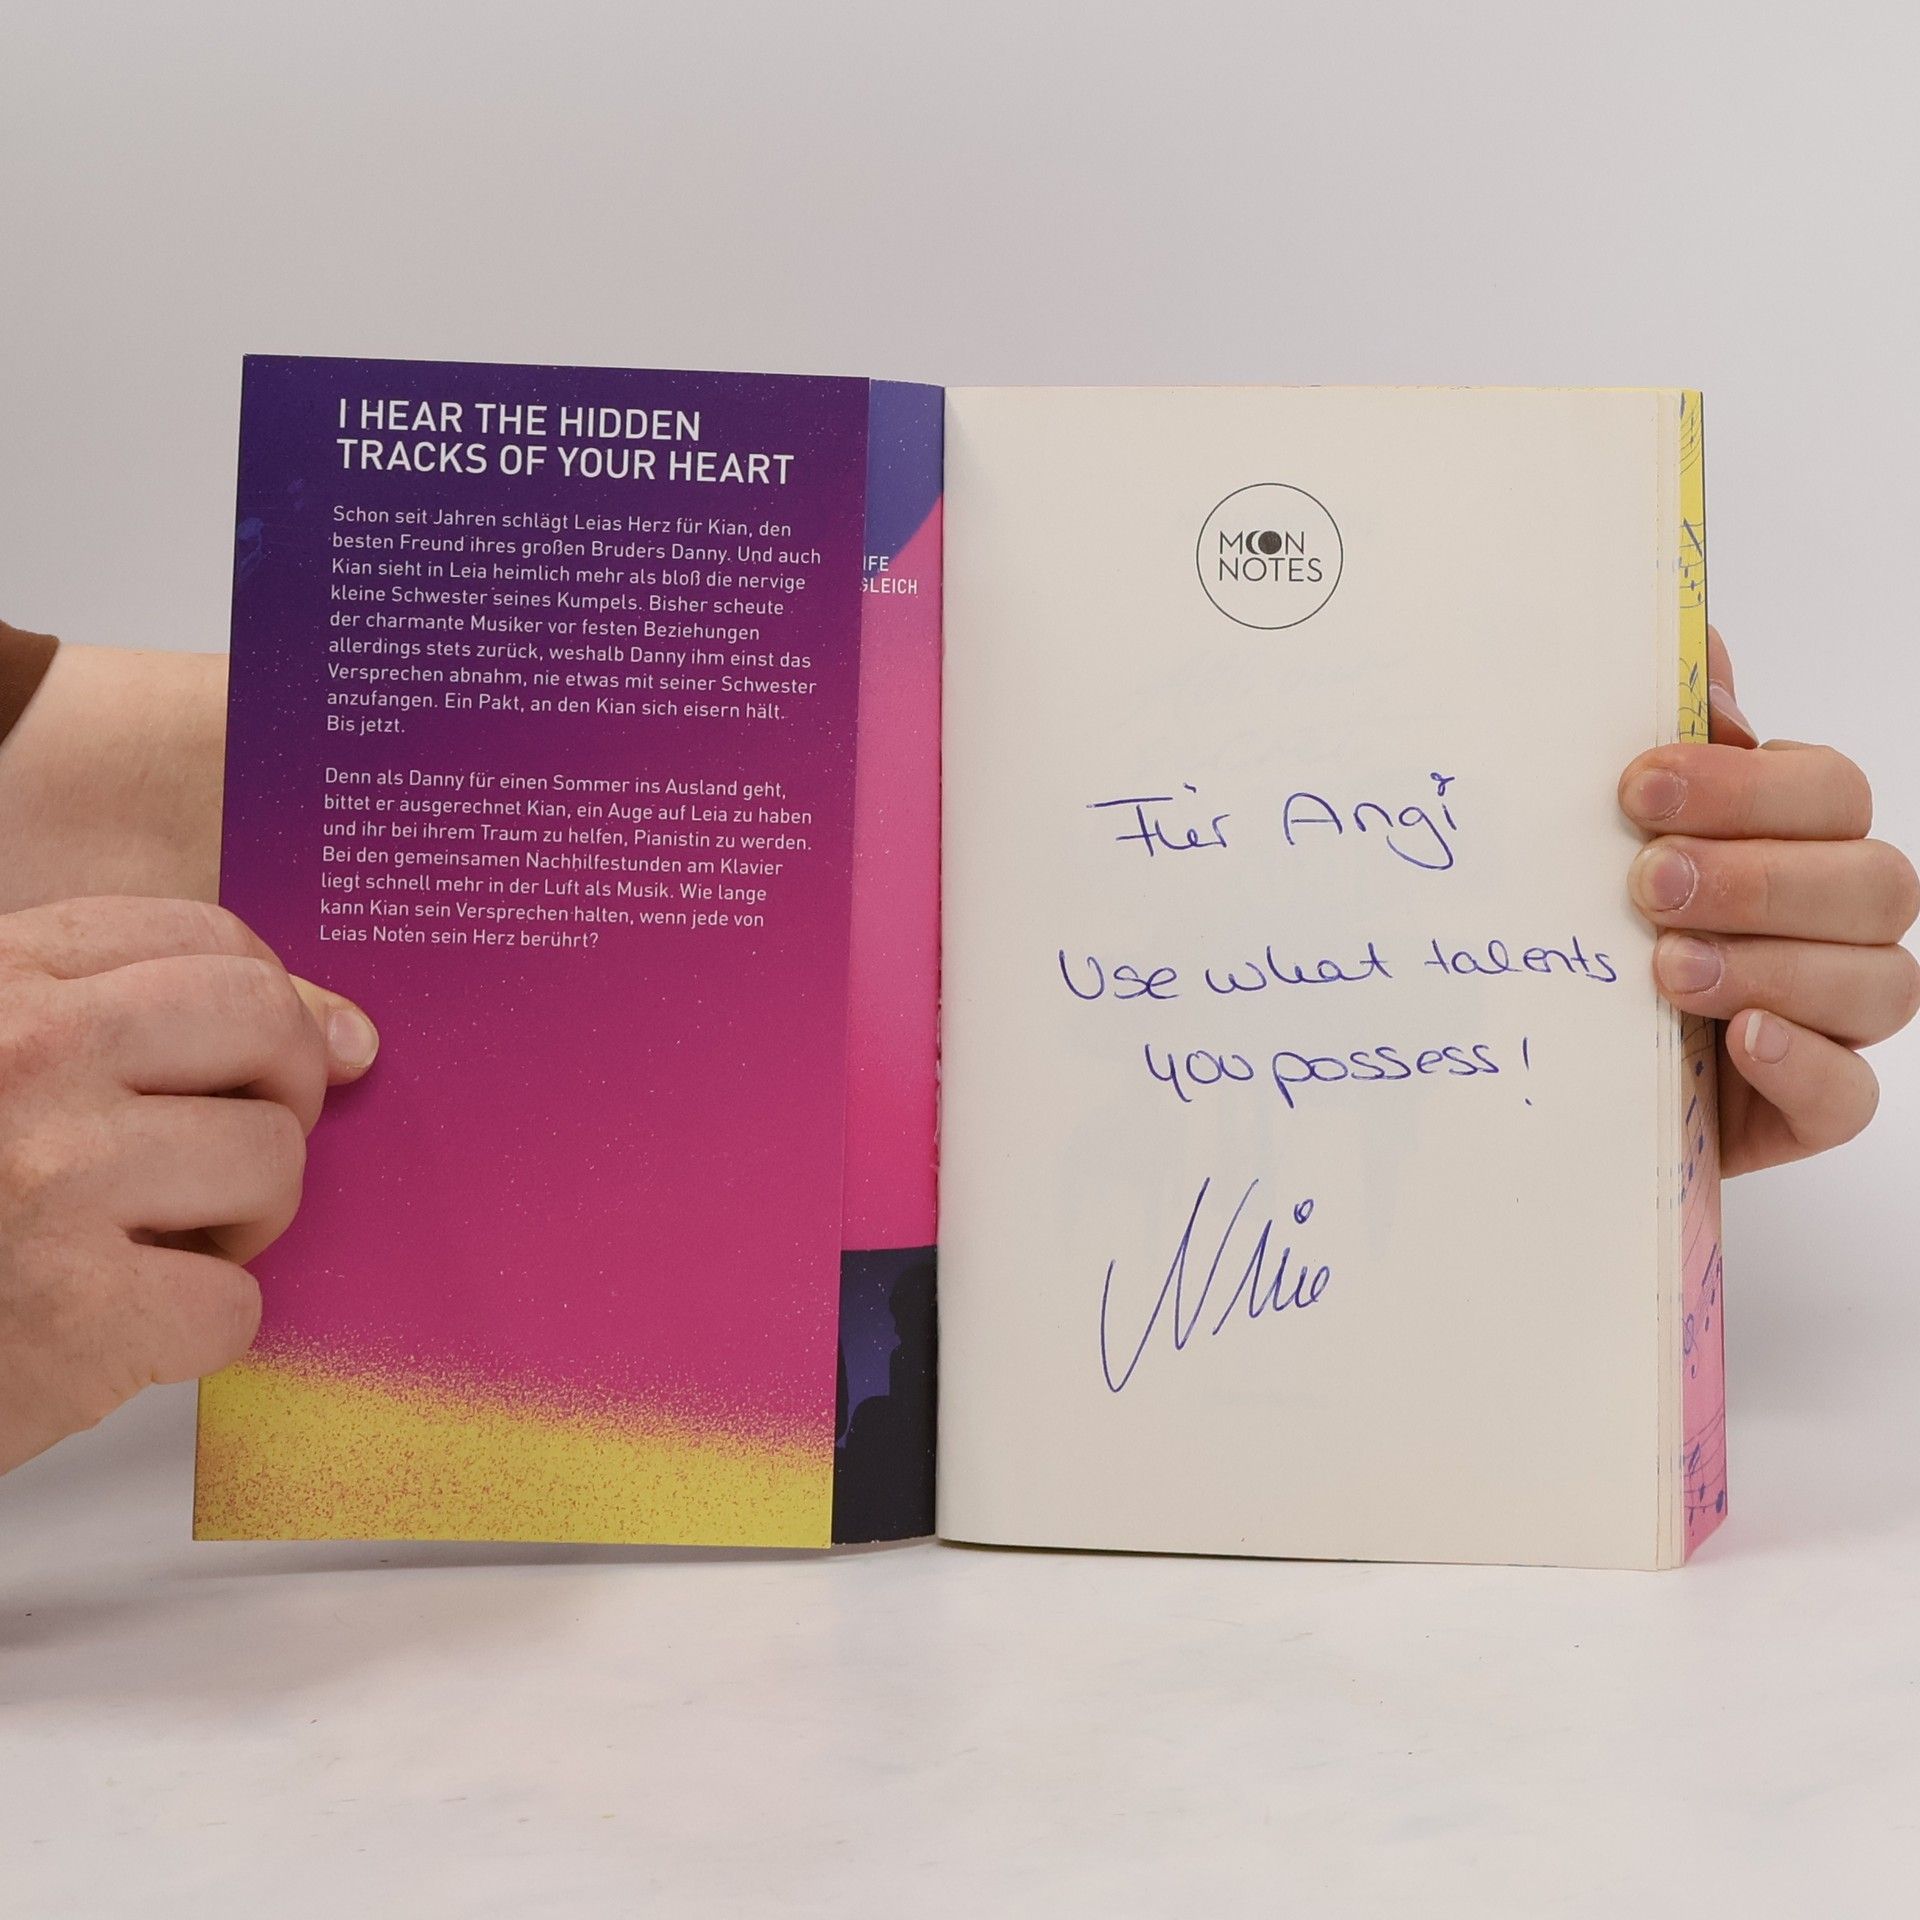 I HEAR THE HIDDEN
TRACKS OF YOUR HEART
Schon seit Jahren schlägt Leias Herz für Kian, den
besten Freund ihres großen Bruders Danny. Und auch
Kian sieht in Leia heimlich mehr als bloß die nervige
kleine Schwester seines Kumpels. Bisher scheute
der charmante Musiker vor festen Beziehungen
allerdings stets zurück, weshalb Danny ihm einst das
Versprechen abnahm, nie etwas mit seiner Schwester
anzufangen. Ein Pakt, an den Kian sich eisern hält.
Bis jetzt.
Denn als Danny für einen Sommer ins Ausland geht,
bittet er ausgerechnet Kian, ein Auge auf Leia zu haben
und ihr bei ihrem Traum zu helfen, Pianistin zu werden.
Bei den gemeinsamen Nachhilfestunden am Klavier
liegt schnell mehr in der Luft als Musik. Wie lange
kann Kian sein Versprechen halten, wenn jede von
Leias Noten sein Herz berührt?
IFE
GLEICH
MOON
NOTES
Für Angi
Use what talents
you possess!